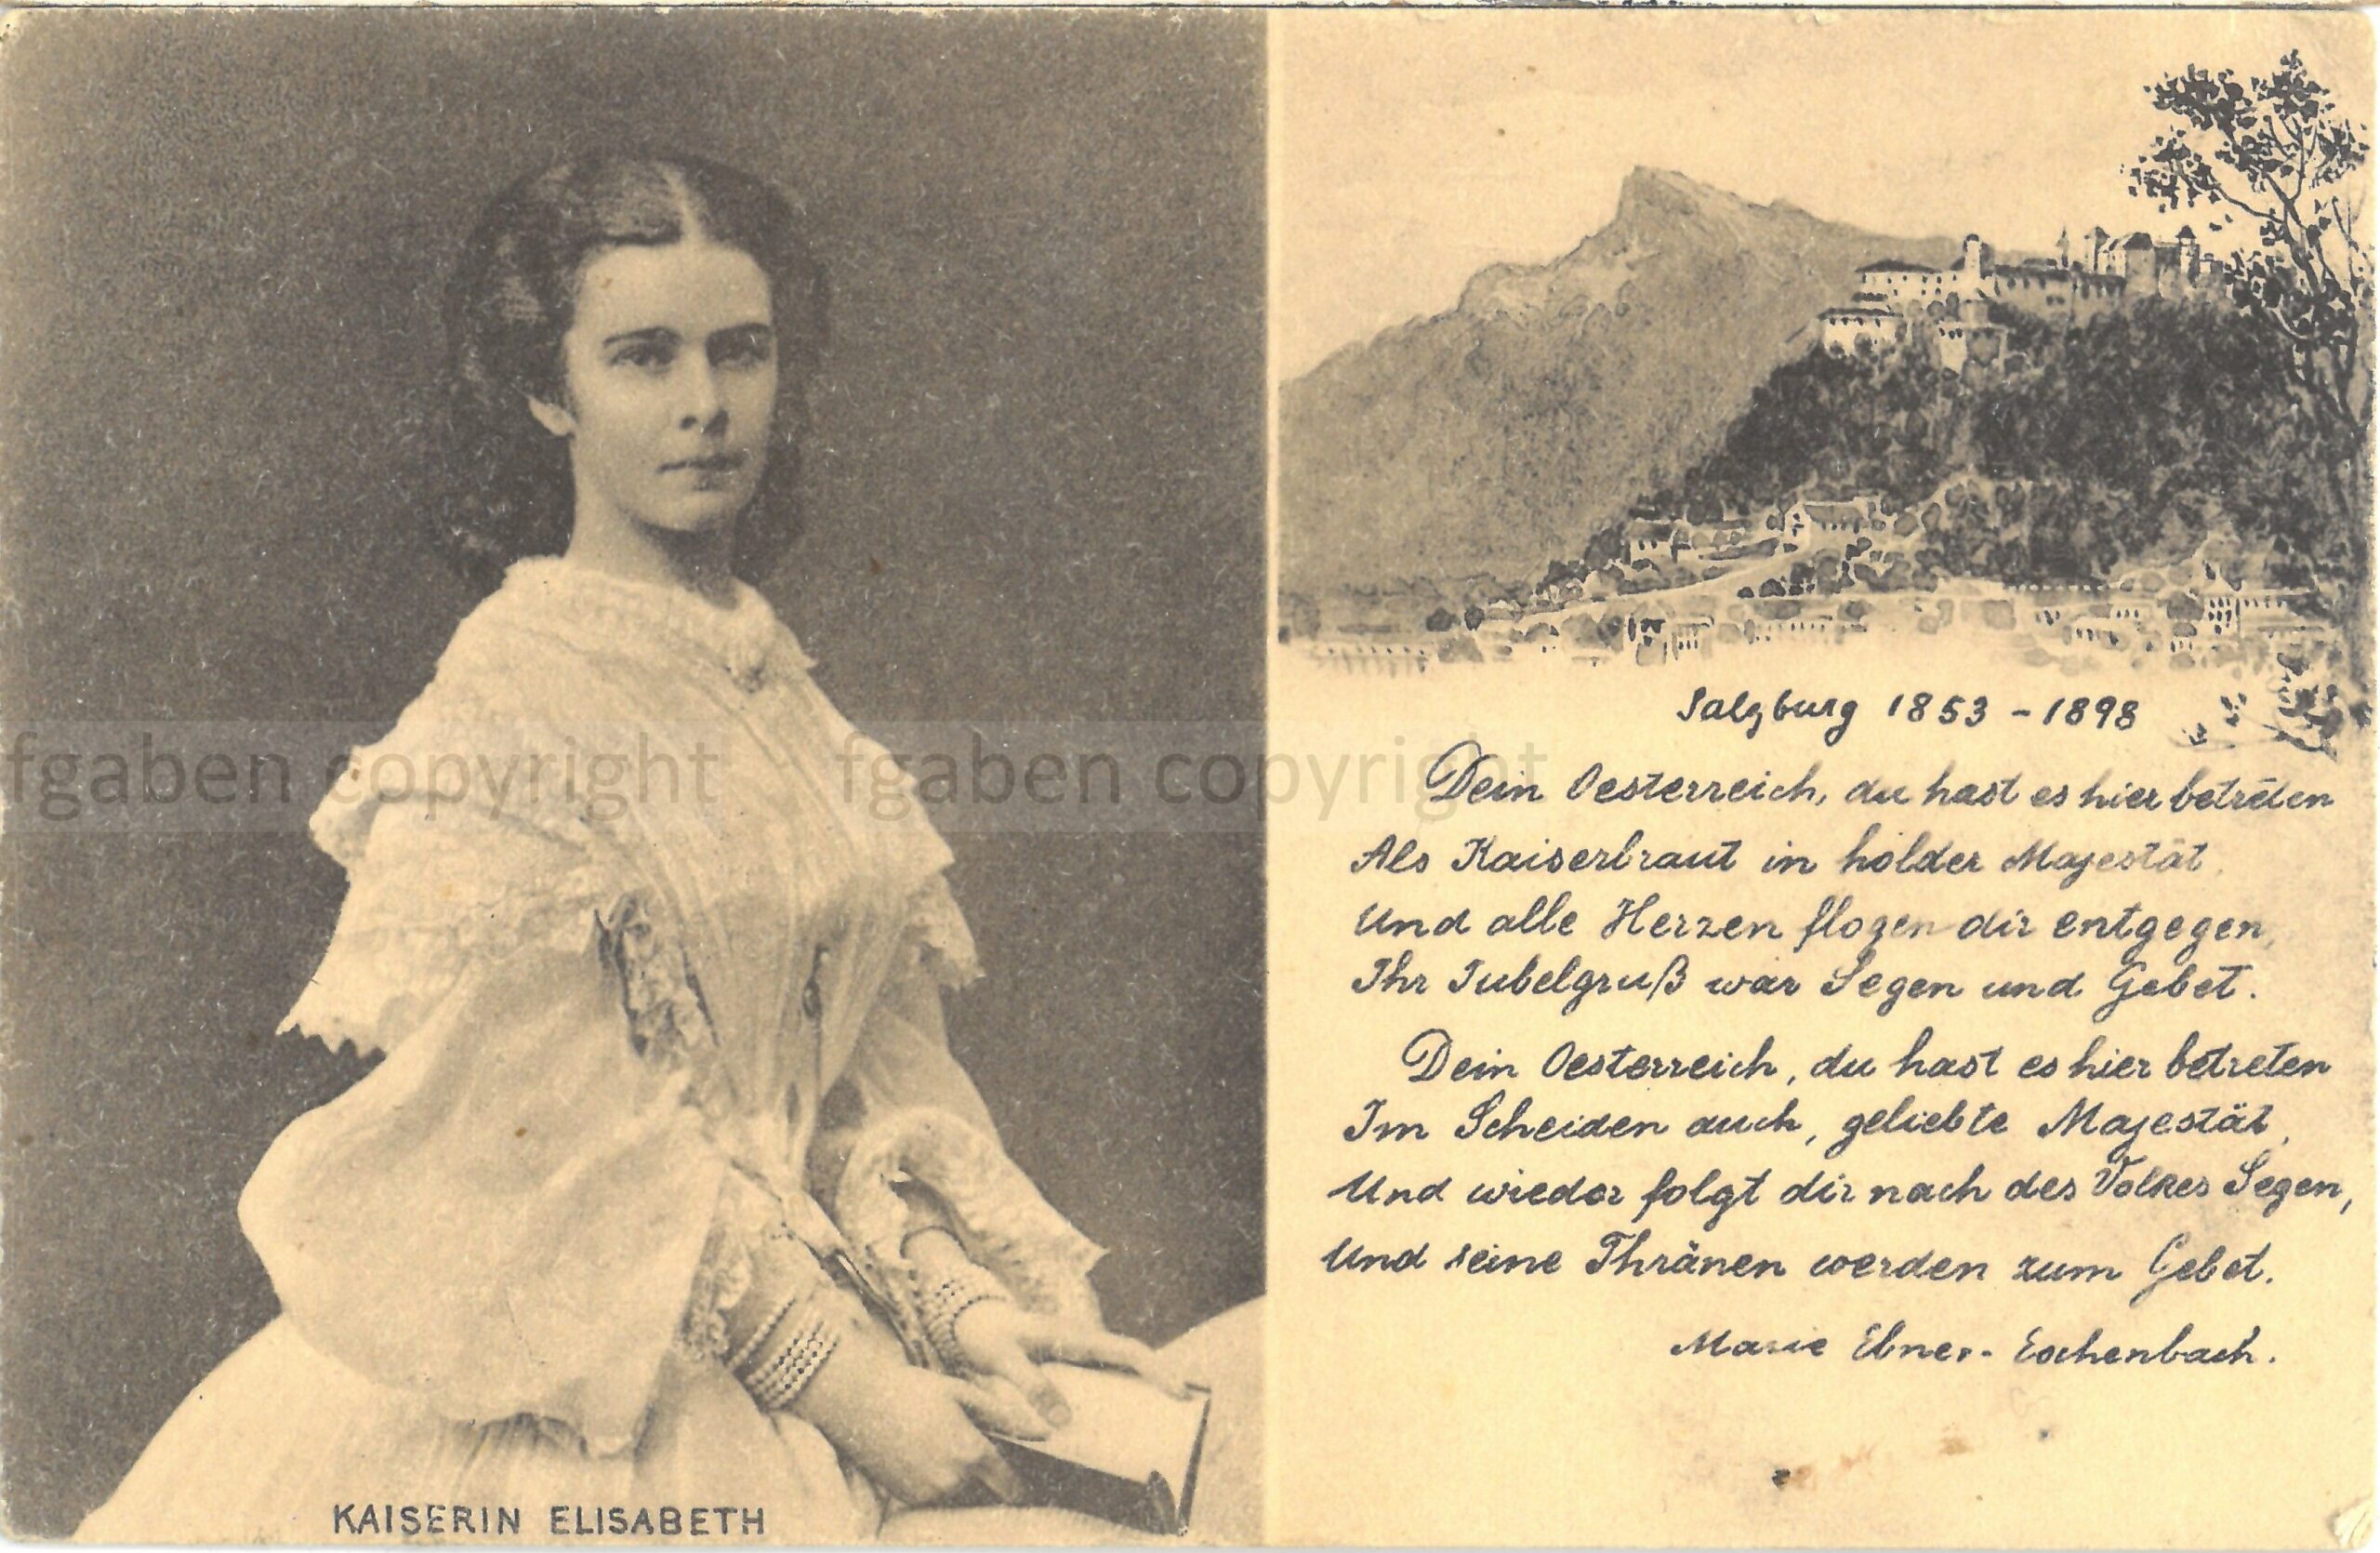 KAISERIN ELISABETH
fgaben copyright fgaben copyright
Salzburg 1853 - 1898
Dein Oesterreich, du hast es hier betreten
Als Kaiserbraut in holder Majestät,
Und alle Herzen flogen dir entgegen,
Ihr Jubelgruß war Segen und Gebet.
Dein Oesterreich, du hast es hier betreten
Im Scheiden auch, geliebte Majestät,
Und wieder folgt dir nach des Volkes Segen,
Und seine Thränen werden zum Gebet.
Marie Ebner-Eschenbach.